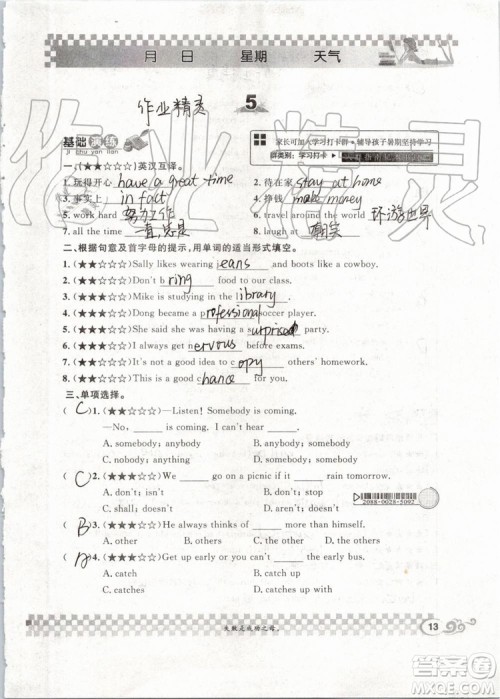 月 日 星期 天气
作业精灵
5
基础演练
ji chu yan lian
家长可加入学习打卡群,辅导孩子暑期坚持学习
群类别:学习打卡
一、(★★☆☆☆)英汉互译。
1. 玩得开心 have a great time 2. 待在家 stay at home
3. 事实上 in fact 4. 挣钱 make money
5. work hard 努力工作 6. travel around the world 环游世界
7. all the time 一直,总是 8. laugh at 嘲笑
二、根据句意及首字母的提示,用单词的适当形式填空。
1. (★★☆☆☆)Sally likes wearing jeans and boots like a cowboy.
2. (★★☆☆☆)Don't bring food to our class.
3. (★★☆☆☆)Mike is studying in the library.
4. (★★☆☆☆)Dong became a professional soccer player.
5. (★★☆☆☆)She said she was having a surprised party.
6. (★★☆☆☆)I always get nervous before exams.
7. (★★☆☆☆)It's not a good idea to copy others' homework.
8. (★★☆☆☆)This is a good chance for you.
三、单项选择。
( C )1. (★★☆☆☆)—Listen! Somebody is coming.
—No, ____ is coming. I can't hear ____.
A. somebody; anybody B. anybody; nobody
C. nobody; anything D. anybody; somebody
( C )2. (★★★☆☆)We ____ go on a picnic if it ____ rain tomorrow.
A. don't; isn't B. don't; don't
C. shall; doesn't D. aren't; doesn't
2088-0028-5092
( B )3. (★★☆☆☆)He always thinks of ____ more than himself.
A. other B. others C. the other D. the others
( A )4. (★★☆☆☆)Get up early or you can't ____ the early bus.
A. catch B. catch up
C. catch up with D. caught
失败是成功之母。
13
答案圈
MXQE.COM